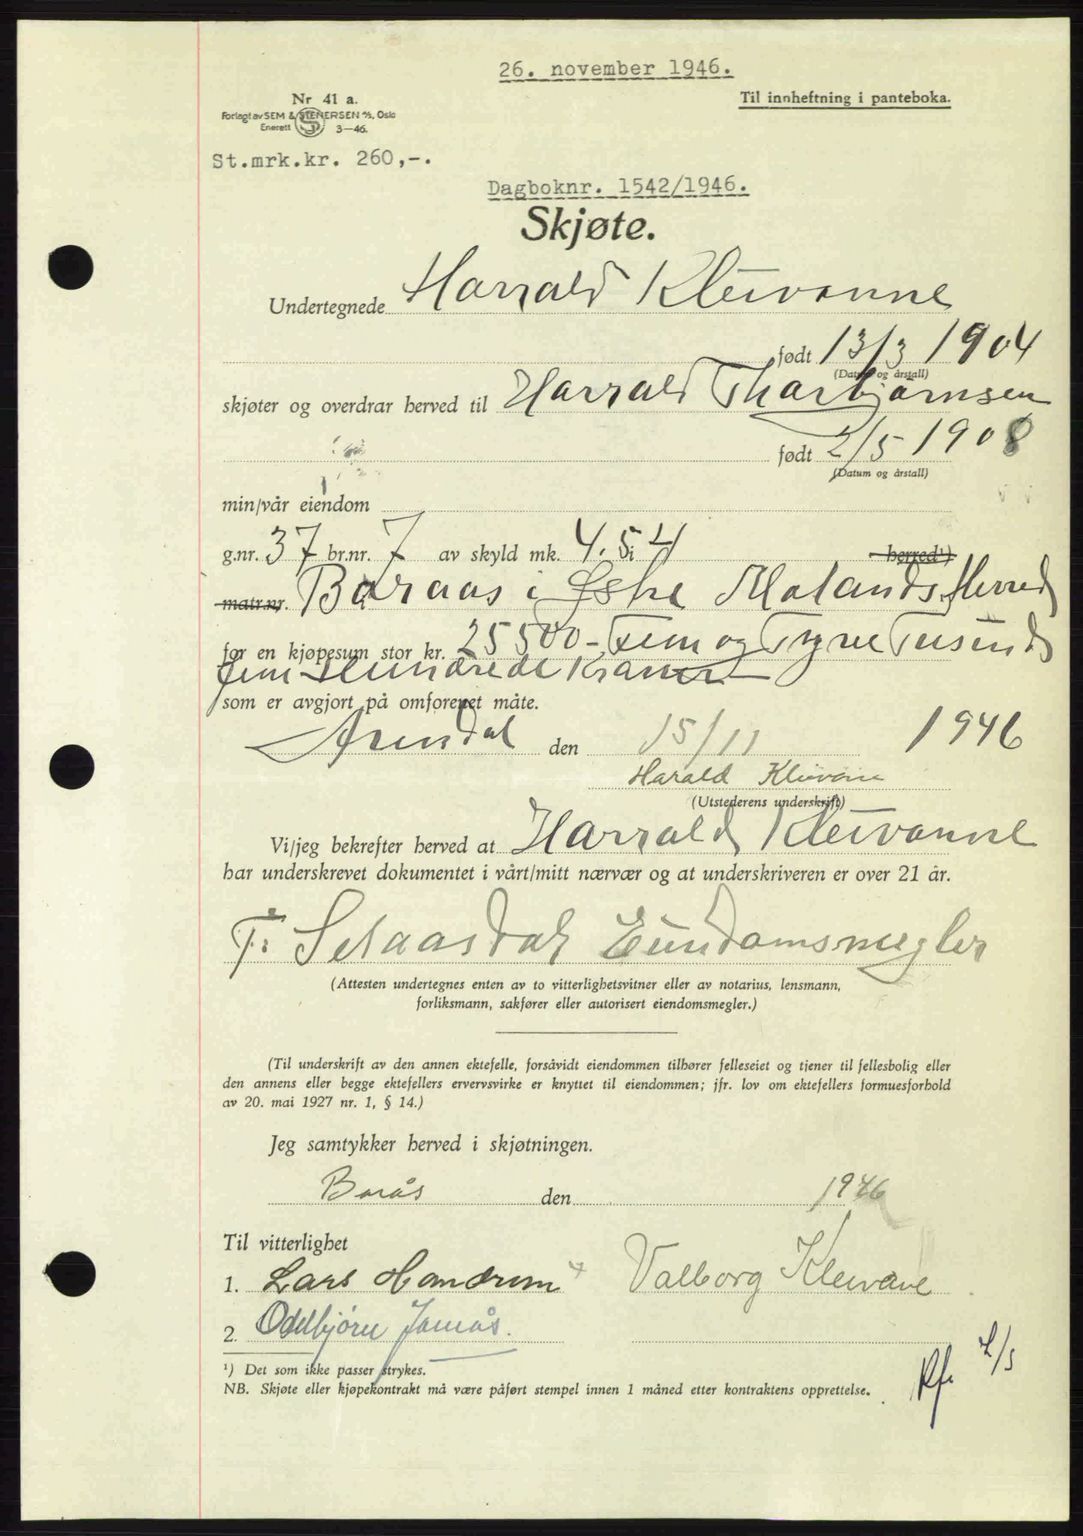 26. november 1946.
Nr 41 a.
Til innheftning i panteboka.
Forlagt av SEM & STENERSEN A/S, Oslo
Enerett 3—46.
St.mrk.kr. 260,-.
Dagboknr. 1542/1946.
Skjøte.
Undertegnede Harrald Kleivanne
født 13/3 1904
(Datum og årstall)
skjøter og overdrar herved til Harrald Tharbjørnsen
født 2/5 1908
(Datum og årstall)
min/vår eiendom
g.nr. 37 br.nr. 7 av skyld mk. 4.54 i herred¹)
matr.nr. Baraas i Østre Molands Herred
for en kjøpesum stor kr. 25500- Fem og Tyve Tusinds
fem Hundrede Kroner
som er avgjort på omforenet måte.
Arendal den 15/11 1946
Harald Kleivane
(Utstederens underskrift)
Vi/jeg bekrefter herved at Harrald Kleivanne
har underskrevet dokumentet i vårt/mitt nærvær og at underskriveren er over 21 år.
T: Selaasdal Eiendomsmegler
(Attesten undertegnes enten av to vitterlighetsvitner eller av notarius, lensmann,
forliksmann, sakfører eller autorisert eiendomsmegler.)
(Til underskrift av den annen ektefelle, forsåvidt eiendommen tilhører felleseiet og tjener til fellesbolig eller
den annens eller begge ektefellers ervervsvirke er knyttet til eiendommen; jfr. lov om ektefellers formuesforhold
av 20. mai 1927 nr. 1, § 14.)
Jeg samtykker herved i skjøtningen.
Borås den 1946
Til vitterlighet
1. Lars Homdrom Valborg Kleivane
2. Oddbjørn
¹) Det som ikke passer strykes.
NB. Skjøte eller kjøpekontrakt må være påført stempel innen 1 måned etter kontraktens opprettelse.